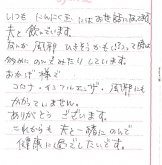 いつも にんにく玉 にはお世話になってます
夫と飲んでいます。
なんか 風邪 ひきそうかも!?って時は
多めに のんでみたりしています。
おかげ様で
コロナ・インフルエンザ・風邪にも
かかってしません。
ありがとう ございます。
これからも 夫と一緒にのんで
健康に過ごしたいです。